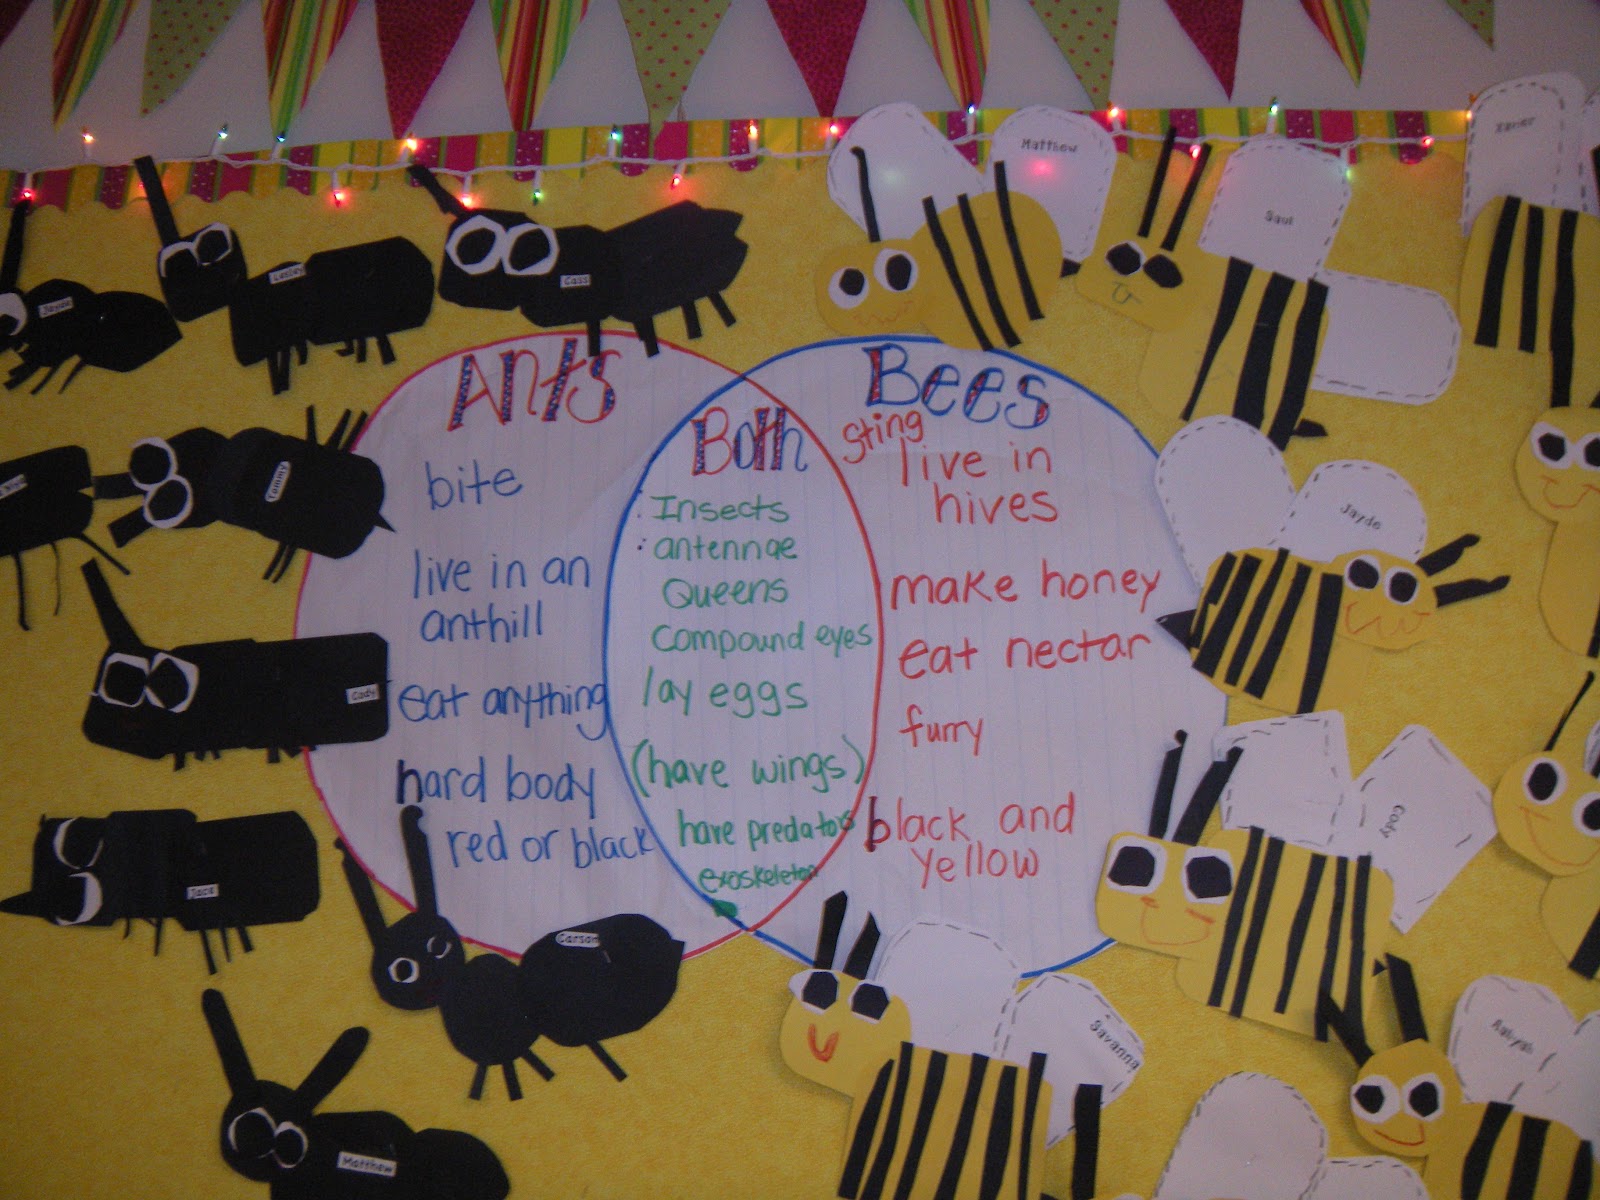 Ants
bite
live in an
anthill
eat anything
hard body
red or black
Both
Insects
antennae
Queens
compound eyes
lay eggs
(have wings)
have predators
exoskeleton
Bees
sting
live in
hives
make honey
eat nectar
furry
black and
yellow
Jayde
Lesley
Cass
Tommy
Cody
Jace
Carson
Matthew
Matthew
Saul
Xavier
Jayde
Cody
Savanna
Aaliyah